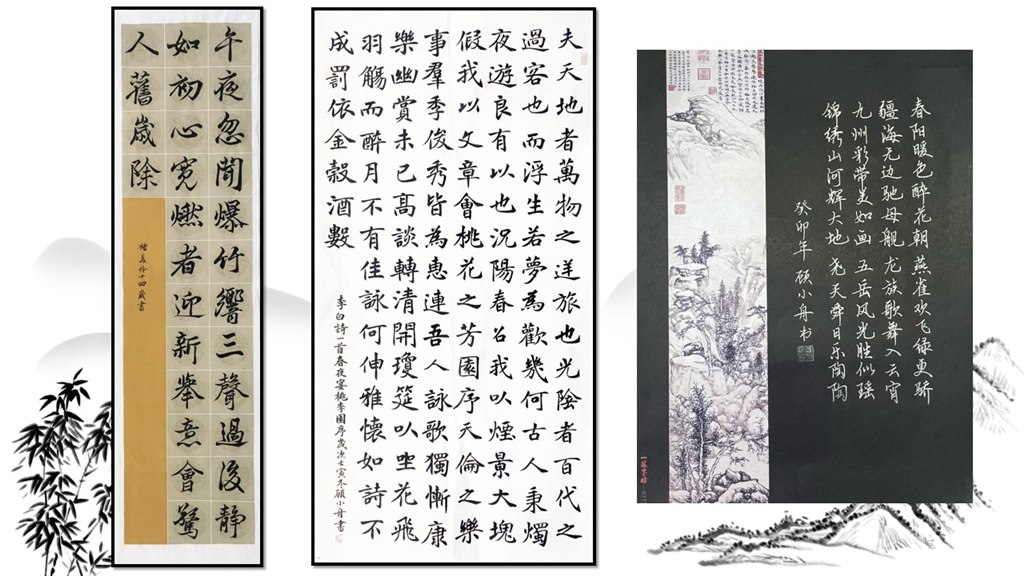 午夜忽聞爆竹響三聲過後靜
如初心寬燃者迎新舉意會驚
人舊歲除
夫天地者萬物之逆旅也光陰者百代之
過客也而浮生若夢為歡幾何古人秉燭
夜遊良有以也況陽春召我以煙景大塊
假我以文章會桃花之芳園序天倫之樂
事羣季俊秀皆為惠連吾人詠歌獨慚康
樂幽賞未已高談轉清開瓊筵以坐花飛
羽觴而醉月不有佳詠何伸雅懷如詩不
成罰依金穀酒數
李白詩一首春夜宴桃李園序歲次壬寅冬顧小舟書
春阳暖色醉花朝 燕雀欢飞绿更骄
疆海无边驰母舰 龙族歌舞入云霄
九州彩带美如画 五岳风光胜似瑶
锦绣山河辉大地 尧天舜日乐陶陶
癸卯年 顾小舟书